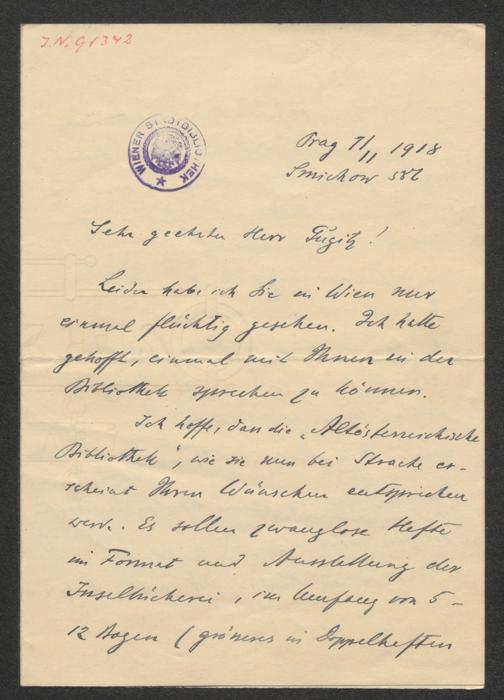 J.N. 91342
WIENER STADTBIBLIOTHEK
Prag 7/11 1918
Smichow 586
Sehr geehrter Herr Gugitz!
Leider habe ich Sie in Wien nur
einmal flüchtig gesehen. Ich hatte
gehofft, einmal mit Ihnen in der
Bibliothek sprechen zu können.
Ich hoffe, dass die „Altösterreichische
Bibliothek", wie sie nun bei Strache er-
scheint Ihren Wünschen entsprechen
werde. Es sollen zwanglose Hefte
im Format und Ausstattung der
Inselbücherei, im Umfang von 5-
12 Bogen (grösseres in Doppelheften